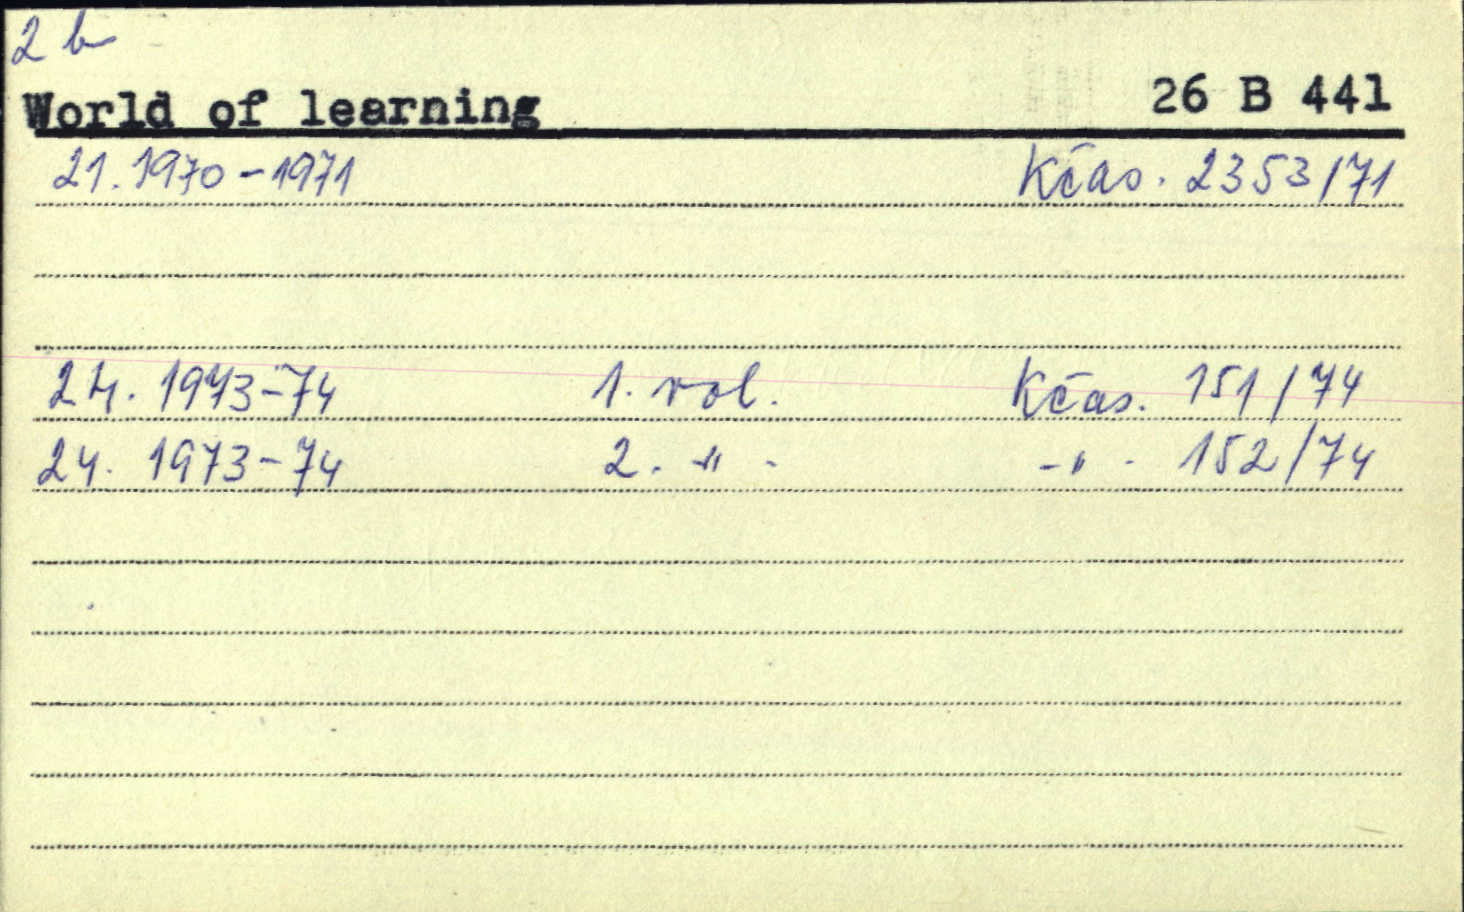 2 b
World of learning 26 B 441
21. 1970-1971 Kčas. 2353/71
24. 1973-74 1. vol. Kčas. 151/74
24. 1973-74 2. -"- -"- 152/74